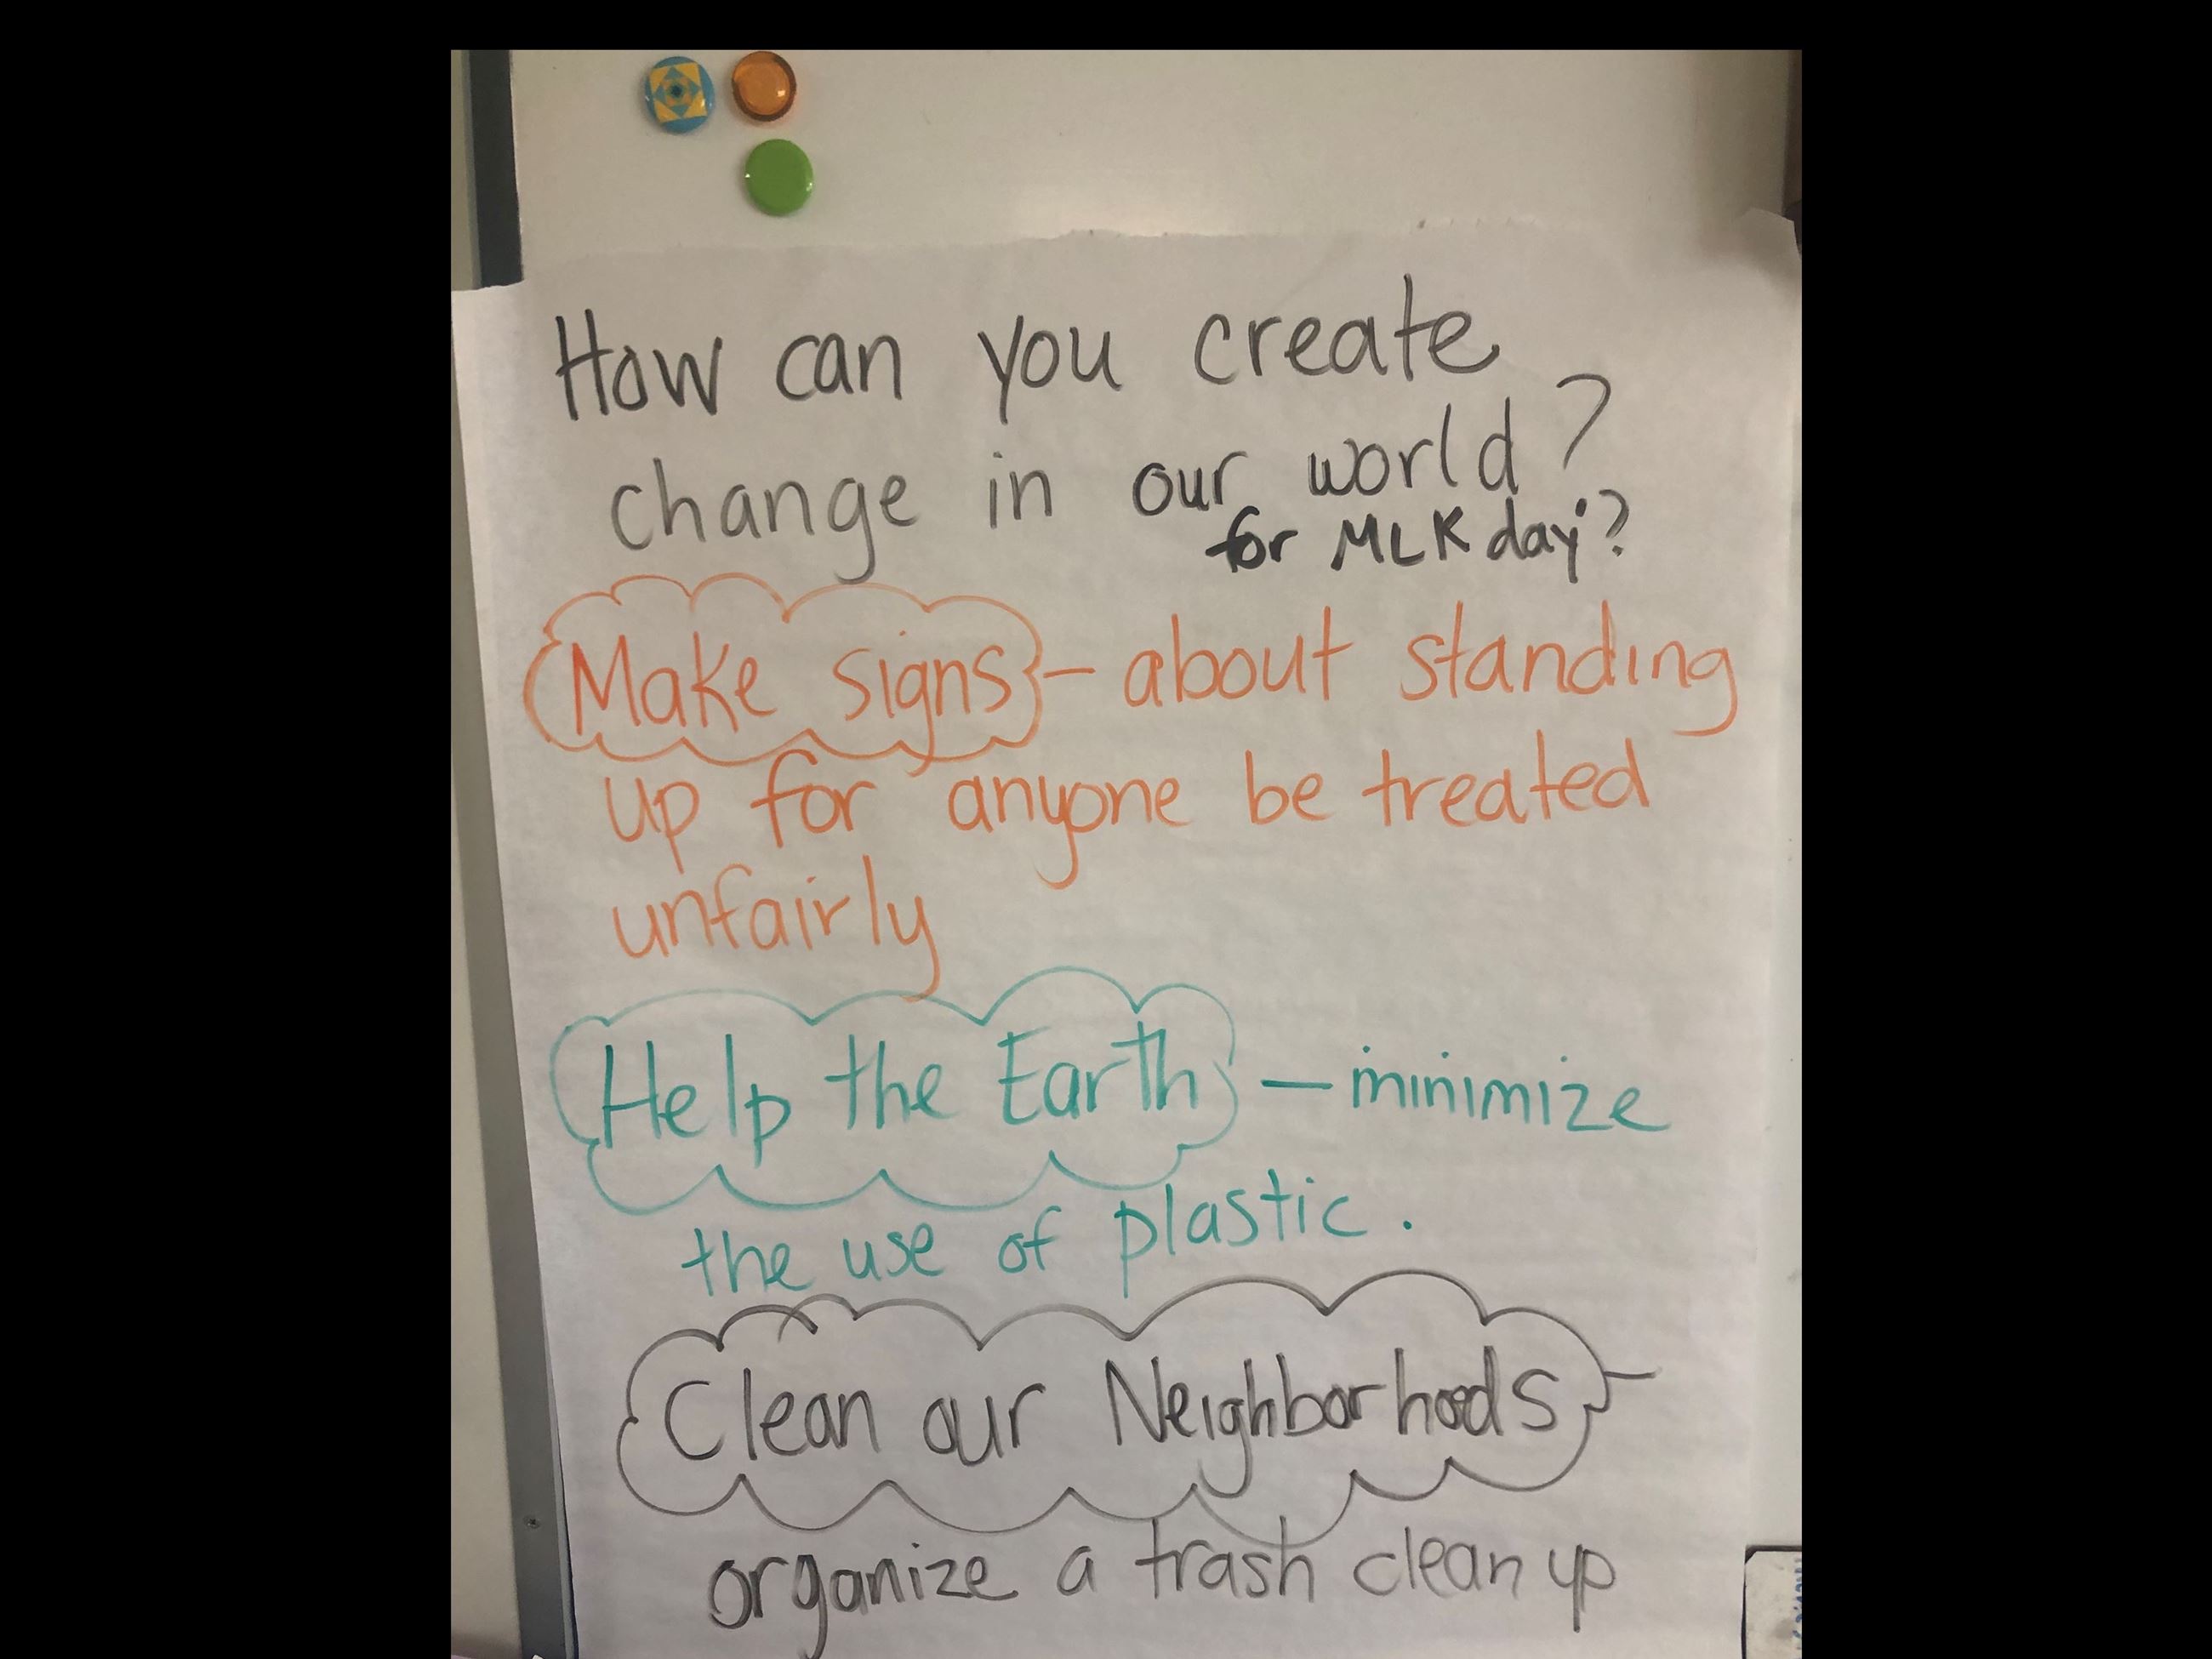 How can you create
change in our world?
for MLK day?
Make signs - about standing
up for anyone be treated
unfairly
Help the Earth - minimize
the use of plastic.
Clean our Neighborhoods -
organize a trash clean up